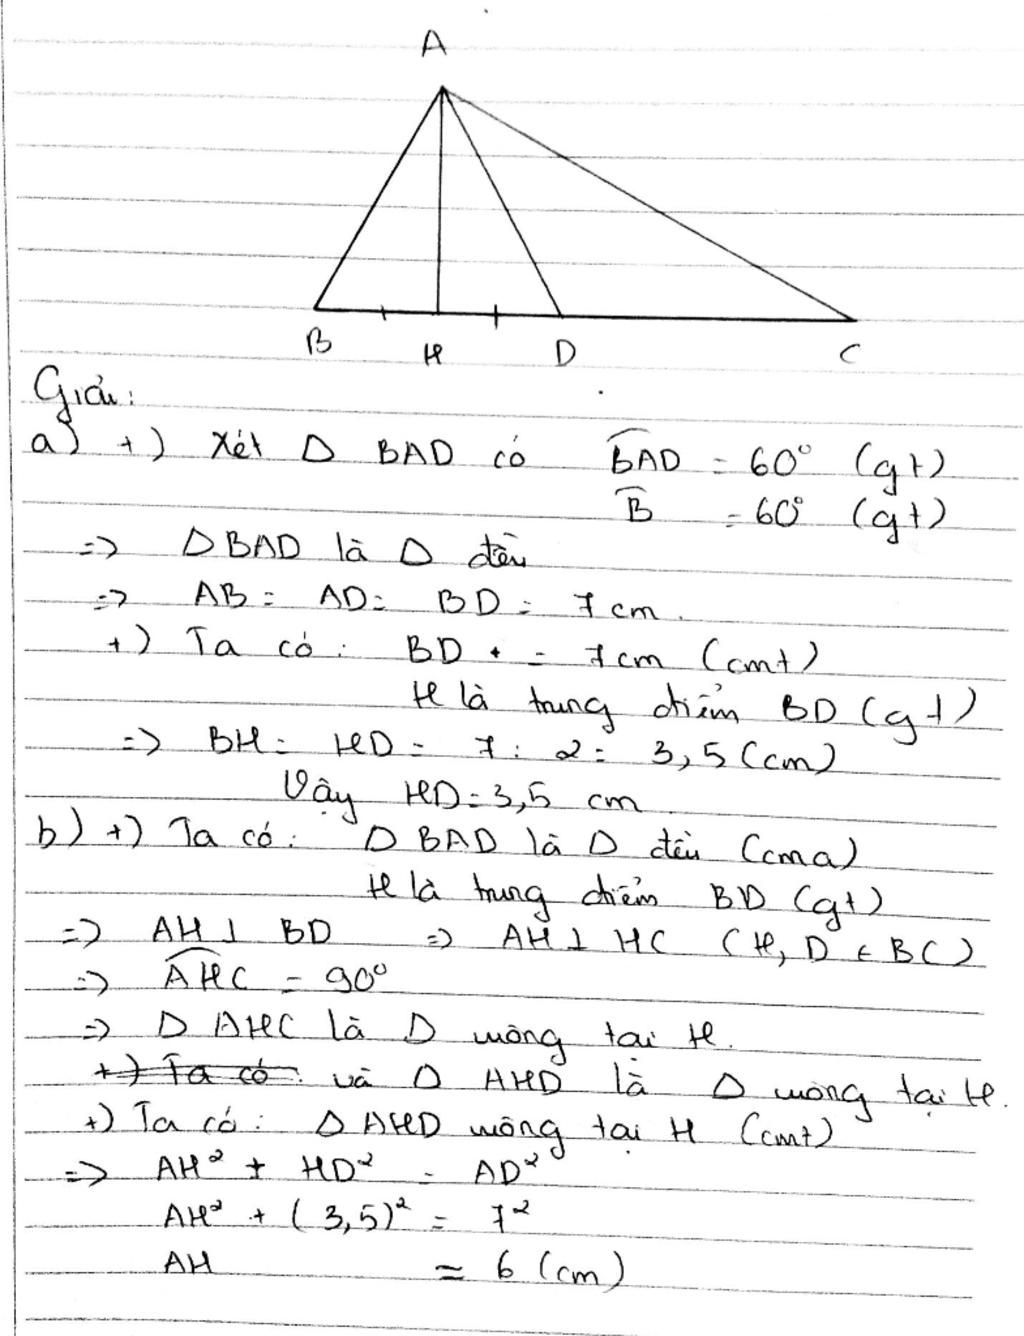 A
B H D C
Giải:
a) +) Xét Δ BAD có BAD = 60° (gt)
B = 60° (gt)
=> Δ BAD là Δ đều
=> AB = AD = BD = 7 cm.
+) Ta có: BD = 7 cm (cmt)
H là trung điểm BD (gt)
=> BH = HD = 7 : 2 = 3,5 (cm)
Vậy HD = 3,5 cm.
b) +) Ta có: Δ BAD là Δ đều (cma)
H là trung điểm BD (gt)
=> AH ⊥ BD => AH ⊥ HC (H, D ∈ BC)
=> AHC = 90°
=> Δ AHC là Δ vuông tại H.
+) Ta có: và Δ AHD là Δ vuông tại H.
+) Ta có: Δ AHD vuông tại H (cmt)
=> AH² + HD² = AD²
AH² + (3,5)² = 7²
AH ≈ 6 (cm)